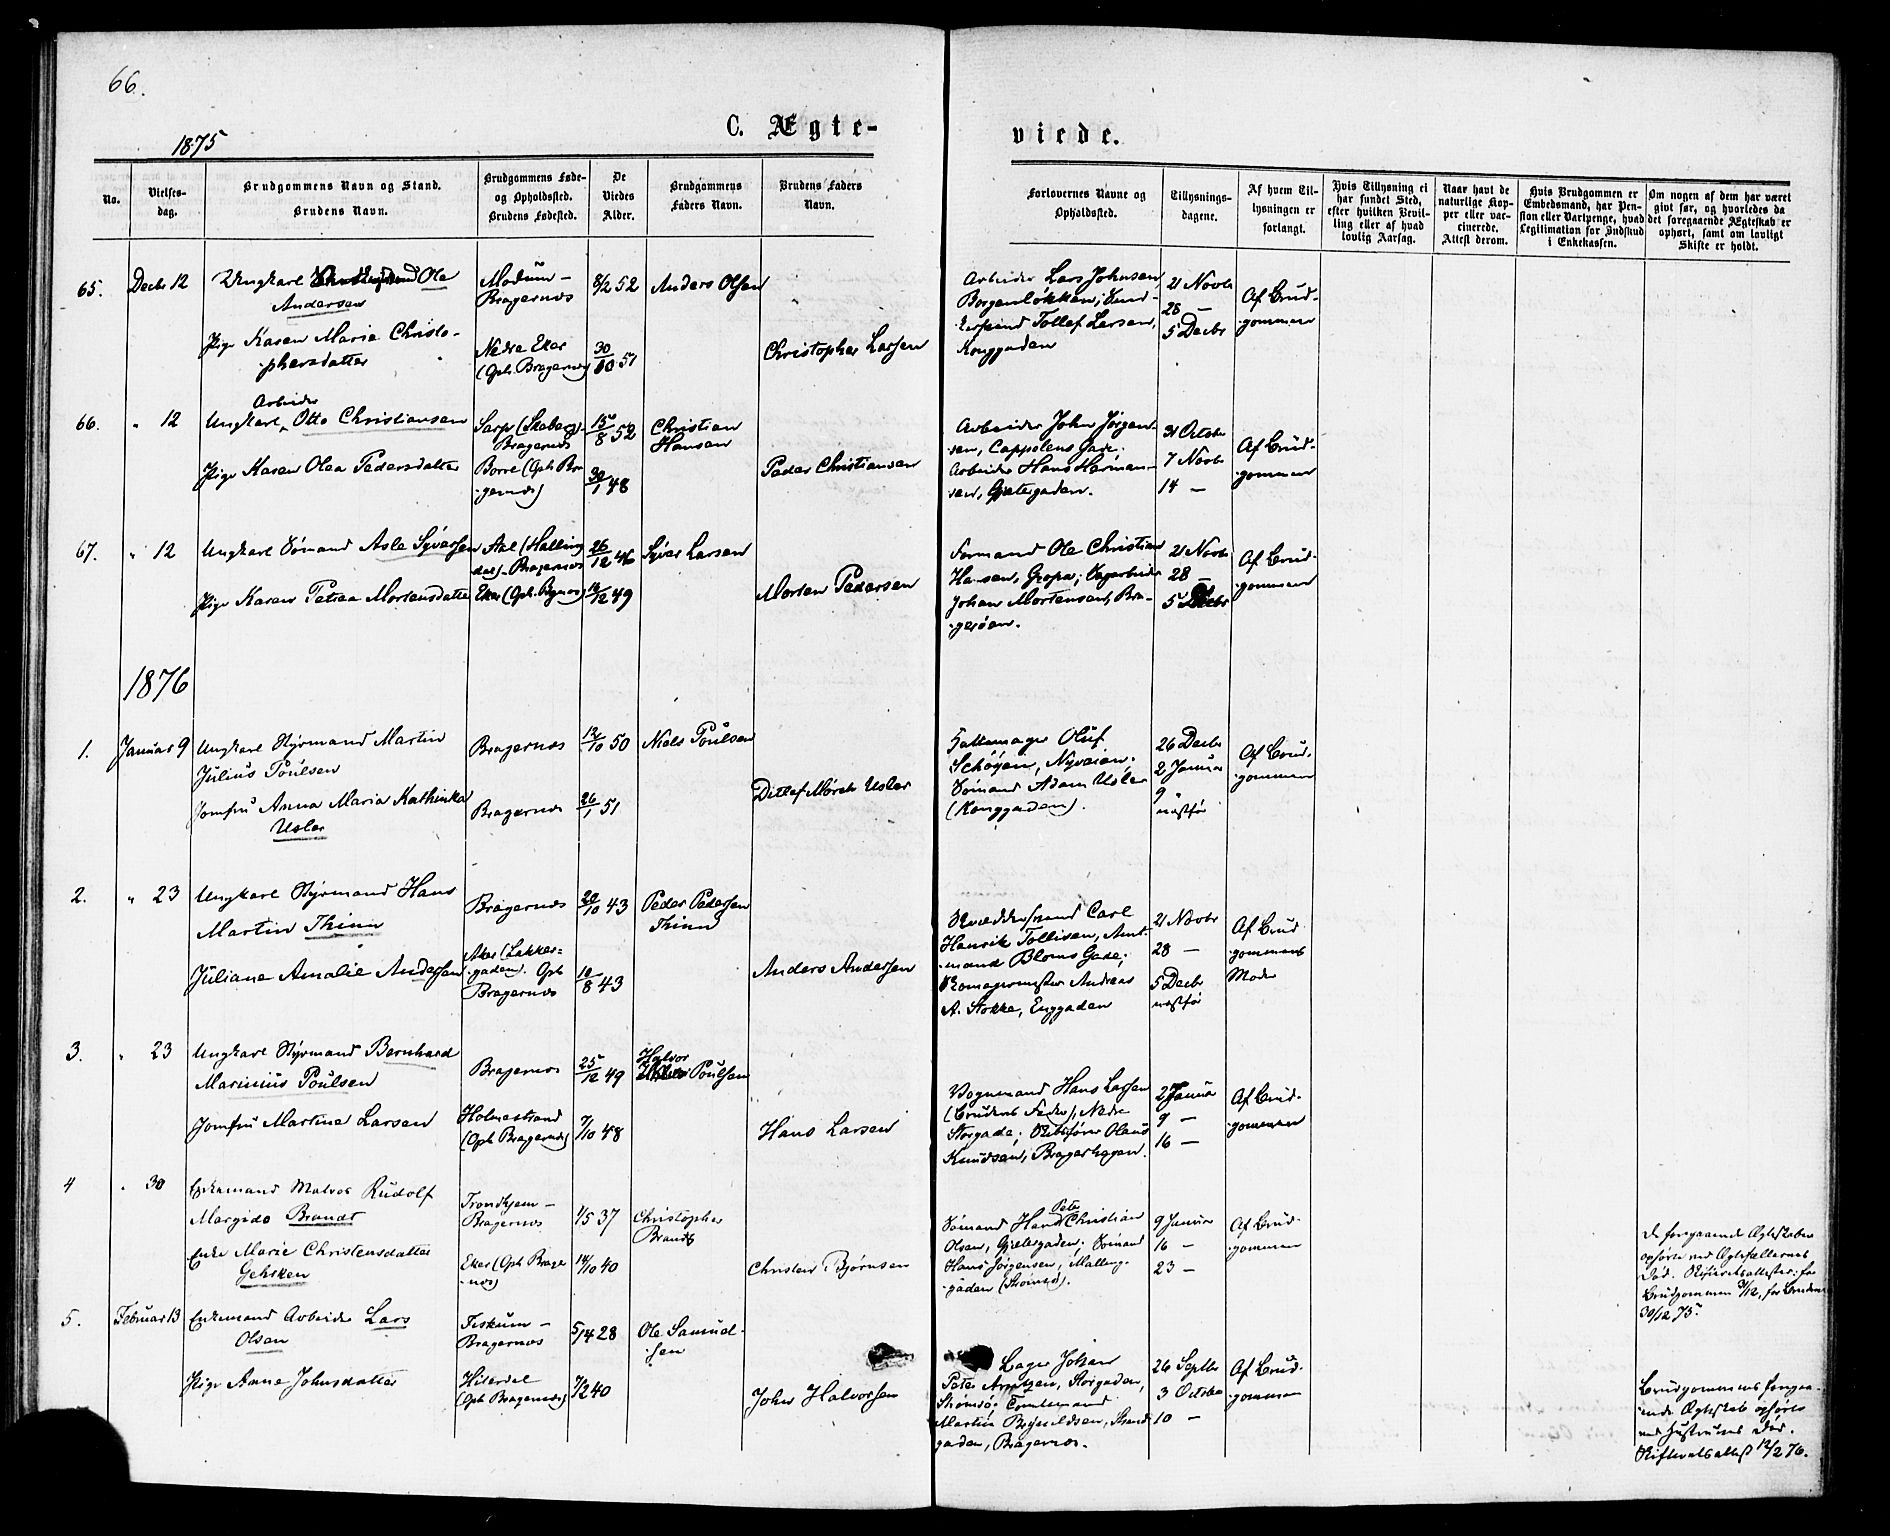 66.
1875
C. Ægte-
viede.
No.
Vielses-
dag.
Brudgommens Navn og Stand.
Brudens Navn.
Brudgommens Føde-
og Opholdssted.
Brudens Fødested.
De
Viedes
Alder.
Brudgommens
Faders Navn.
Brudens Faders
Navn.
Forlovernes Navne og
Opholdssted.
Tillysnings-
dagene.
Af hvem Til-
lysningen er
forlangt.
Hvis Tillysning ei
har fundet Sted,
efter hvilken Bevil-
ling eller af hvad
lovlig Aarsag.
Naar havt de
naturlige Kop-
per eller vac-
cinerede.
Attest derom.
Hvis Brudgommen er
Embedsmand, har Pen-
sion eller Vartpenge, hvad
Legitimation for Indskud
i Enkekassen.
Om nogen af dem har været
givt før, og hvorledes da
det foregaaende Ægteskab er
ophørt, samt om lovligt
Skifte er holdt.
65.
Decbr 12
Ungkarl Ole
Andersen
Pige Karen Marie Christo-
phersdatter
Modum -
Bragernes
Nedre Eker
(Oph. Bragernes)
8/2 52
30/10 51
Anders Olsen
Christopher Larsen
Arbeider Lars Johnsen,
Borgenløkken;
Tollef Larsen,
Konggaden
21 Novbr
28 -
5 Decbr
Af Brud-
gommen
66.
" 12
Arbeider
Ungkarl Otto Christiansen
Pige Karen Olea Pedersdatter
Sarp (Skaberg)-
Bragernes
Borre (Oph Bra-
gernes)
15/8 52
30/1 48
Christian
Hansen
Peder Christiansen
Arbeider John Jørgen-
sen, Cappelens Gade;
Arbeider Hans Herman-
sen, Gjetergaden.
31 Octobr
7 Novbr
14 -
Af Brud-
gommen
67.
" 12
Ungkarl Sømand Asle Syversen
Pige Karen Petrea Mortensdatter
Aal (Halling
dal)- Bragernes
Eker (Oph. Bragernes)
26/12 46
12/12 49
Syver Larsen
Morten Pedersen
Formand Ole Christian
Hansen, Gropa; Sagarbeider
Johan Mortensen, Bra-
gerøen.
21 Novbr
28 -
5 Decbr
Af Brud-
gommen
1876
1.
Januar 9
Ungkarl Styrmand Martin
Julius Poulsen
Jomfru Anna Maria Kathinka
Usler
Bragernes
Bragernes
12/10 50
26/1 51
Niels Poulsen
Ditlef Mørch Usler
Hattemager Oluf
Schøyen, Nyveien;
Sømand Adam Usler
(Konggaden).
26 Decbr
2 Januar
9 "
næstfør
Af Brud-
gommen
2.
" 23
Ungkarl Styrmand Hans
Martin Thinn
Juliane Amalie Andersen
Bragernes
Aker (Lakker-
gaden). Oph
Bragernes
20/10 43
10/8 43
Peder Pedersen
Thinn
Anders Andersen
Carl
Henrik Tollisen, Amt-
mand Bloms Gade;
Andreas
A. Stokke, Enggaden
21 Novbr
28 -
5 Decbr
næstfør
Af Brud
gommens
Moder
3.
" 23
Ungkarl Styrmand Bernhard
Marinius Poulsen
Jomfru Martine Larsen
Bragernes
Holmestrand
(Oph Bragernes)
25/12 49
7/10 48
Halvor
Poulsen
Hans Larsen
Vognmand Hans Larsen
(Brudens Fader), Nedre
Storgade; Skibsfører Olaus
Knudsen, Bragerhagen.
2 Januar
9 -
16 -
Af Brud-
gommen
4
" 30
Enkemand Rudolf
Margido Brandt
Enke Marie Christensdatter
Gehrken
Trondhjem -
Bragernes
Eker (Oph Brager-
nes)
1/5 37
14/10 40
Christopher
Brandt
Christen Bjørnsen
Peter
Sømand Hans Christian
Olsen, Gjetergaden; Sømand
Hans Jørgensen, Malling-
gaden (Strømsø).
9 Januar
16 -
23 -
Af Brud-
gommen
De foregaaende Ægteskaber
ophørte ved Ægtefællernes
Død. Skifteretsattester: for
Brudgommen 3/12, for Bruden
30/12 75.
5.
Februar 13
Enkemand Arbeider Lars
Olsen
Pige Anne Johnsdatter
Fiskum -
Bragernes
Hiterdal
(Oph Bragernes)
5/4 28
7/2 40
Ole Samuel-
sen
John Halvorsen
Bager Johan
Peter Arntzen, Storgaden,
Strømsø;
Martin Bryneldsen, Strand
gaden, Bragernes.
26 Septbr
3 Octobr
10 -
Af Brud-
gommen
Brudgommens forega-
ende Ægteskab ophørte
ved Hustruens Død.
Skifteretsattest 12/2 76.